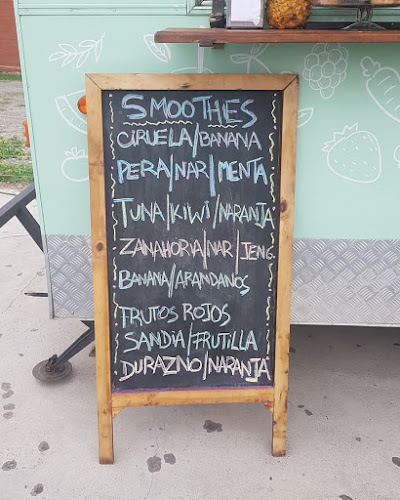 SMOOTHES
CIRUELA/BANANA
PERA/NAR/MENTA
TUNA/KIWI/NARANJA
ZANAHORIA/NAR/JENG.
BANANA/ARANDANOS
FRUTOS ROJOS
SANDIA/FRUTILLA
DURAZNO/NARANJA